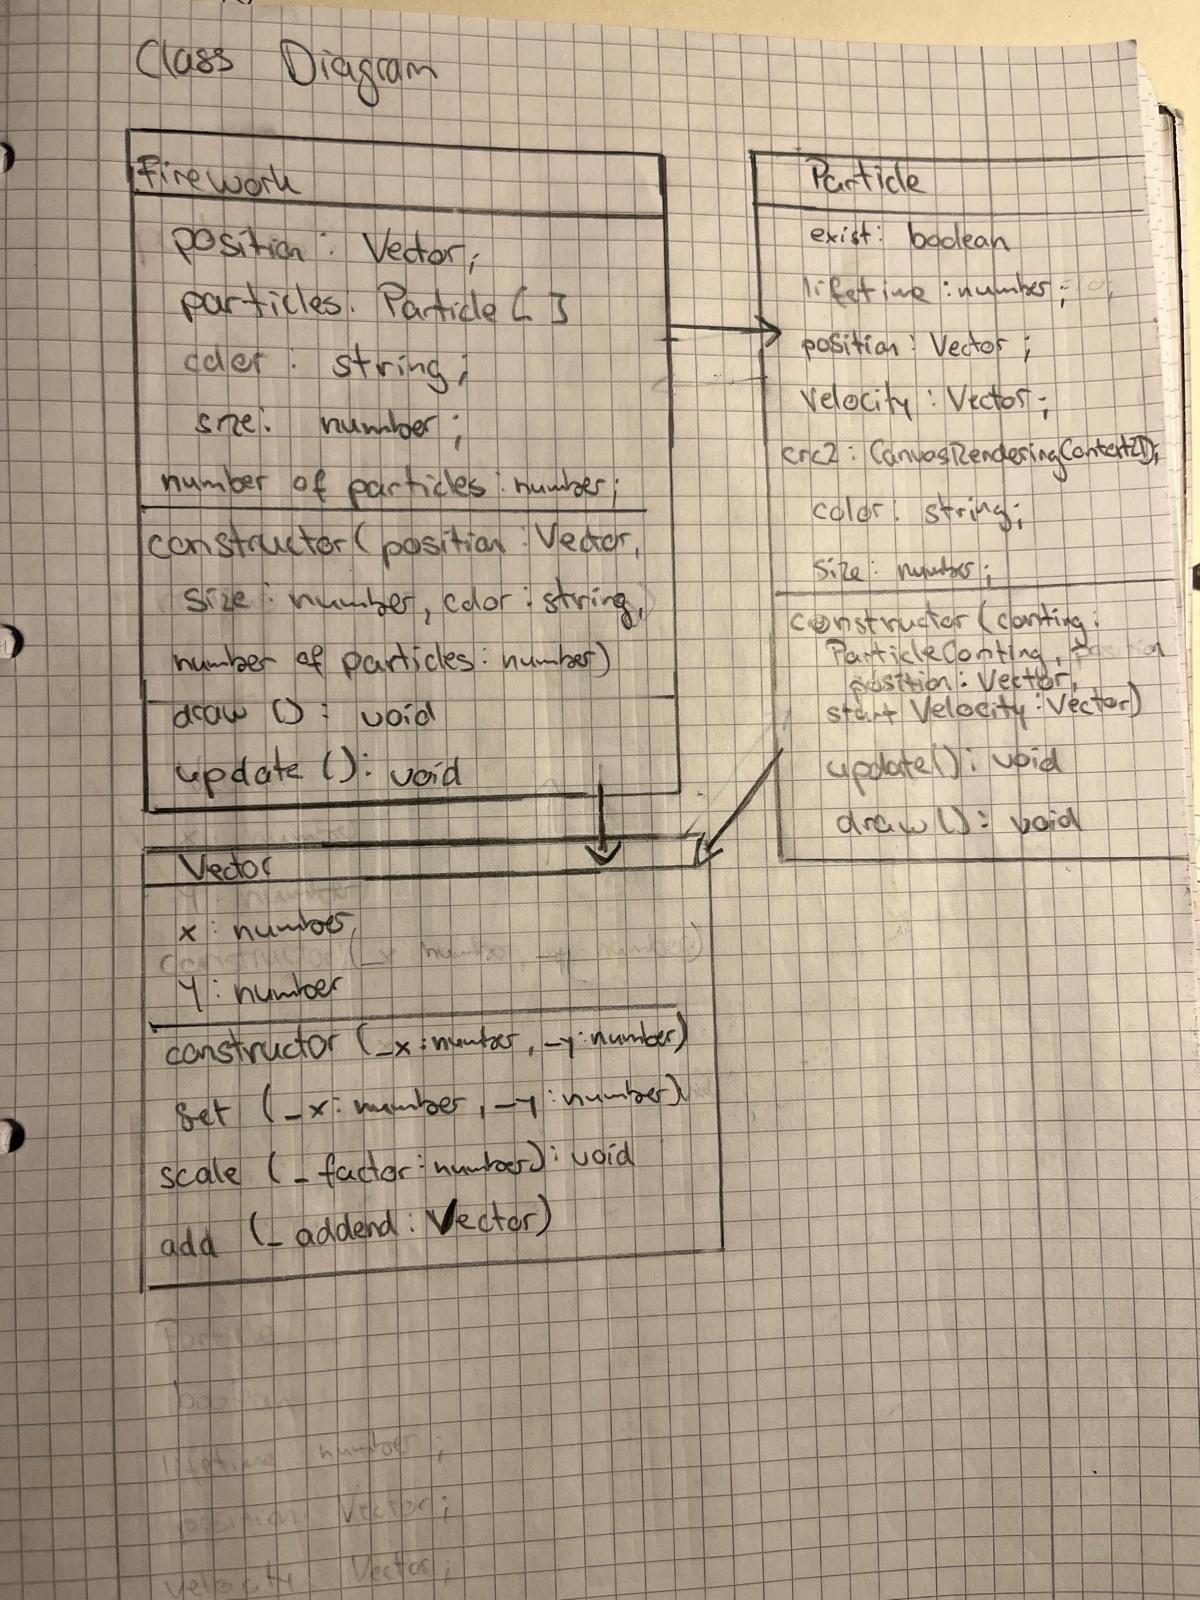 Class Diagram
Firework
position : Vector;
particles: Particle [ ]
color : string;
size: number;
number of particles : number;
constructor( position : Vector,
size : number, color : string,
number of particles : number)
draw () : void
update () : void
Particle
exist: boolean
lifetime : number;
position : Vector ;
velocity : Vector;
crc2 : CanvasRenderingContext2D;
color: string;
size: number;
constructor (conting:
ParticleConting, position
position : Vector,
start Velocity : Vector)
update() : void
draw () : void
Vector
x : number,
constructor (_x number, _y number)
y : number
constructor (_x : number, _y : number)
set (_x : number, _y : number)
scale (_factor : number) : void
add (_addend : Vector)
Particle
boolean
lifetime number ;
position Vector ;
velocity Vector ;